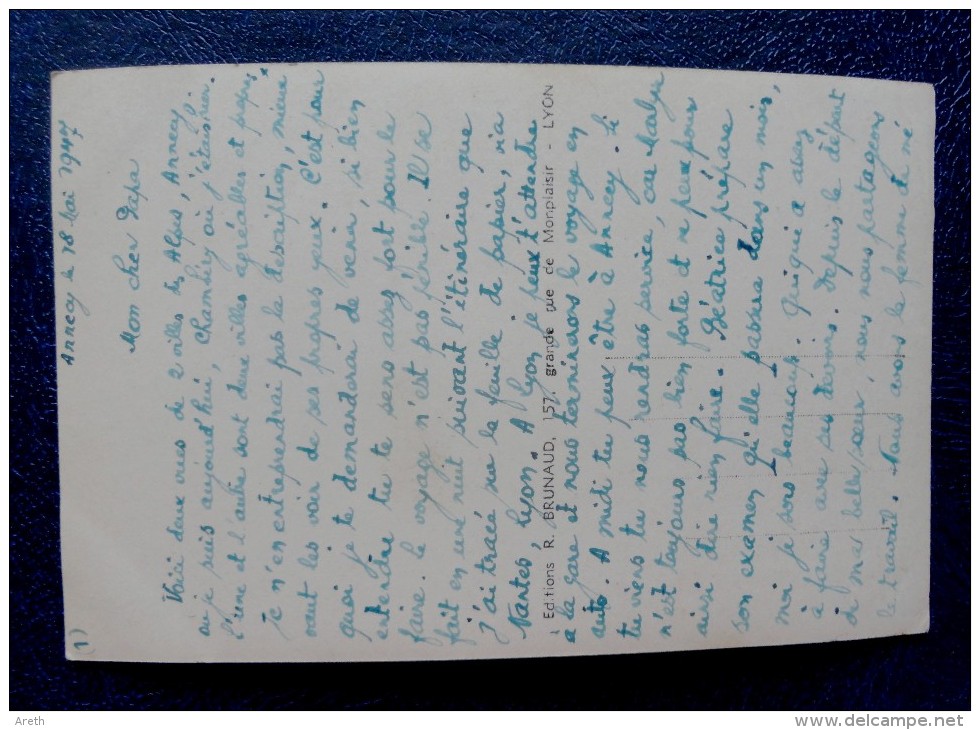 (1)
Annecy le 18 Mai 1947
Mon cher Papa
Voici deux vues de 2 villes des Alpes, Annecy
où je suis aujourd'hui, Chambéry où j'étais hier.
L'une et l'autre sont deux villes agréables et propres.
Je n'en entreprendrai pas la description, mieux
vaut les voir de ses propres yeux. C'est pour
quoi je te demanderai de venir, si bien
entendu tu te sens assez fort pour le
faire. Le voyage n'est pas pénible. Il se
fait en une nuit suivant l'itinéraire que
j'ai tracé sur la feuille de papier, via
Nantes, Lyon. A Lyon je peux t'attendre
Editions R. BRUNAUD, 157, grande rue de Monplaisir - LYON
a la gare et nous terminerons le voyage en
auto. A midi tu peux être à Annecy. Si
tu viens tu nous rendras service, car
n'est toujours pas bien forte et ne peux pour
ainsi dire rien faire. Béatrice prépare
son examen qu'elle passera dans un mois,
moi je sors beaucoup. a assez
à faire avec ses devoirs. Depuis le départ
de ma belle/sœur, nous nous partageons
le travail. Nous avons la femme de mé
Areth
www.delcampe.net